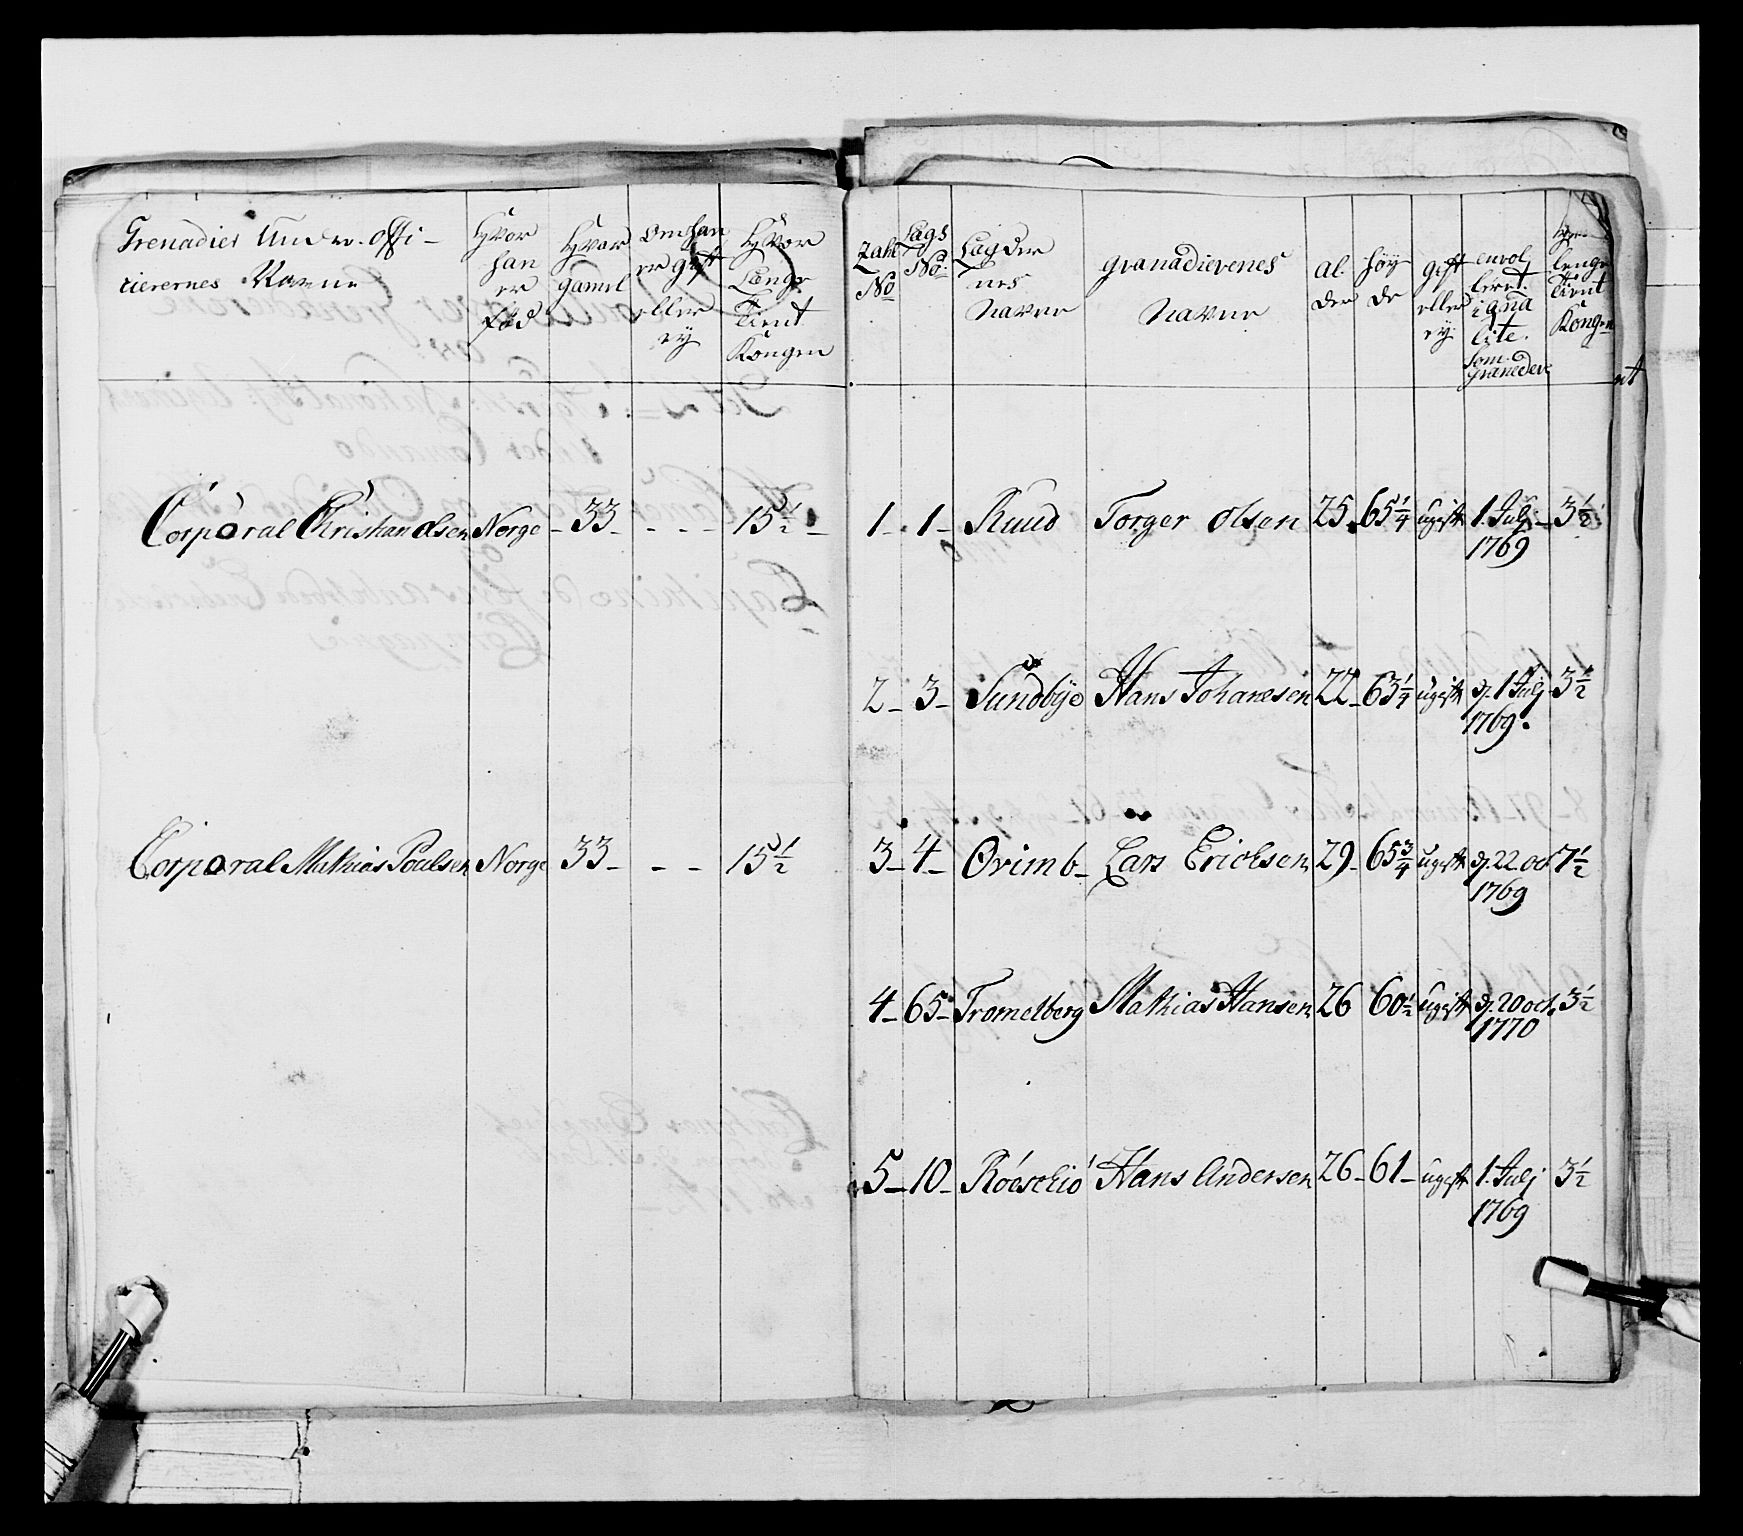 Grenadier Under-offi-
cierernes Navne
Hvor
han
er
fød
Hvor
gamel
Om han
er gift
eller
ey
Hvor
Længe
Tient
Kongen
Corporal Christian Olsen Norge - 33 - - - 15½ -
Corporal Mathias Poulsen Norge 33 - - - 15½
Zahl
No
Lags
No.
Lagder
nes
Navne
granadierenes
Navne
al
der
høy
de
gift
eller
ey.
enrol
leret
i qva
lite.
som
Granedere
lenge
Tient
Kongen
1 - 1 - Ruud Torger Olsen 25. 65¼ ugift 1. Julj 3½
1769
2 - 3 - Sundbye Hans Johanesen 22 - 63½ ugift d. 1 Julj 3½
1769.
3 - 4 - Ørimb - Lars Ericksen 29 - 65¾ ugift d. 22 oct 7½
1769
4 - 65 - Tromelberg Mathias Hansen 26 60½ ugift d. 20 oct. 3½
1770
5 - 10 - Hans Andersen 26 - 61 - ugift 1. Julj 3½
1769